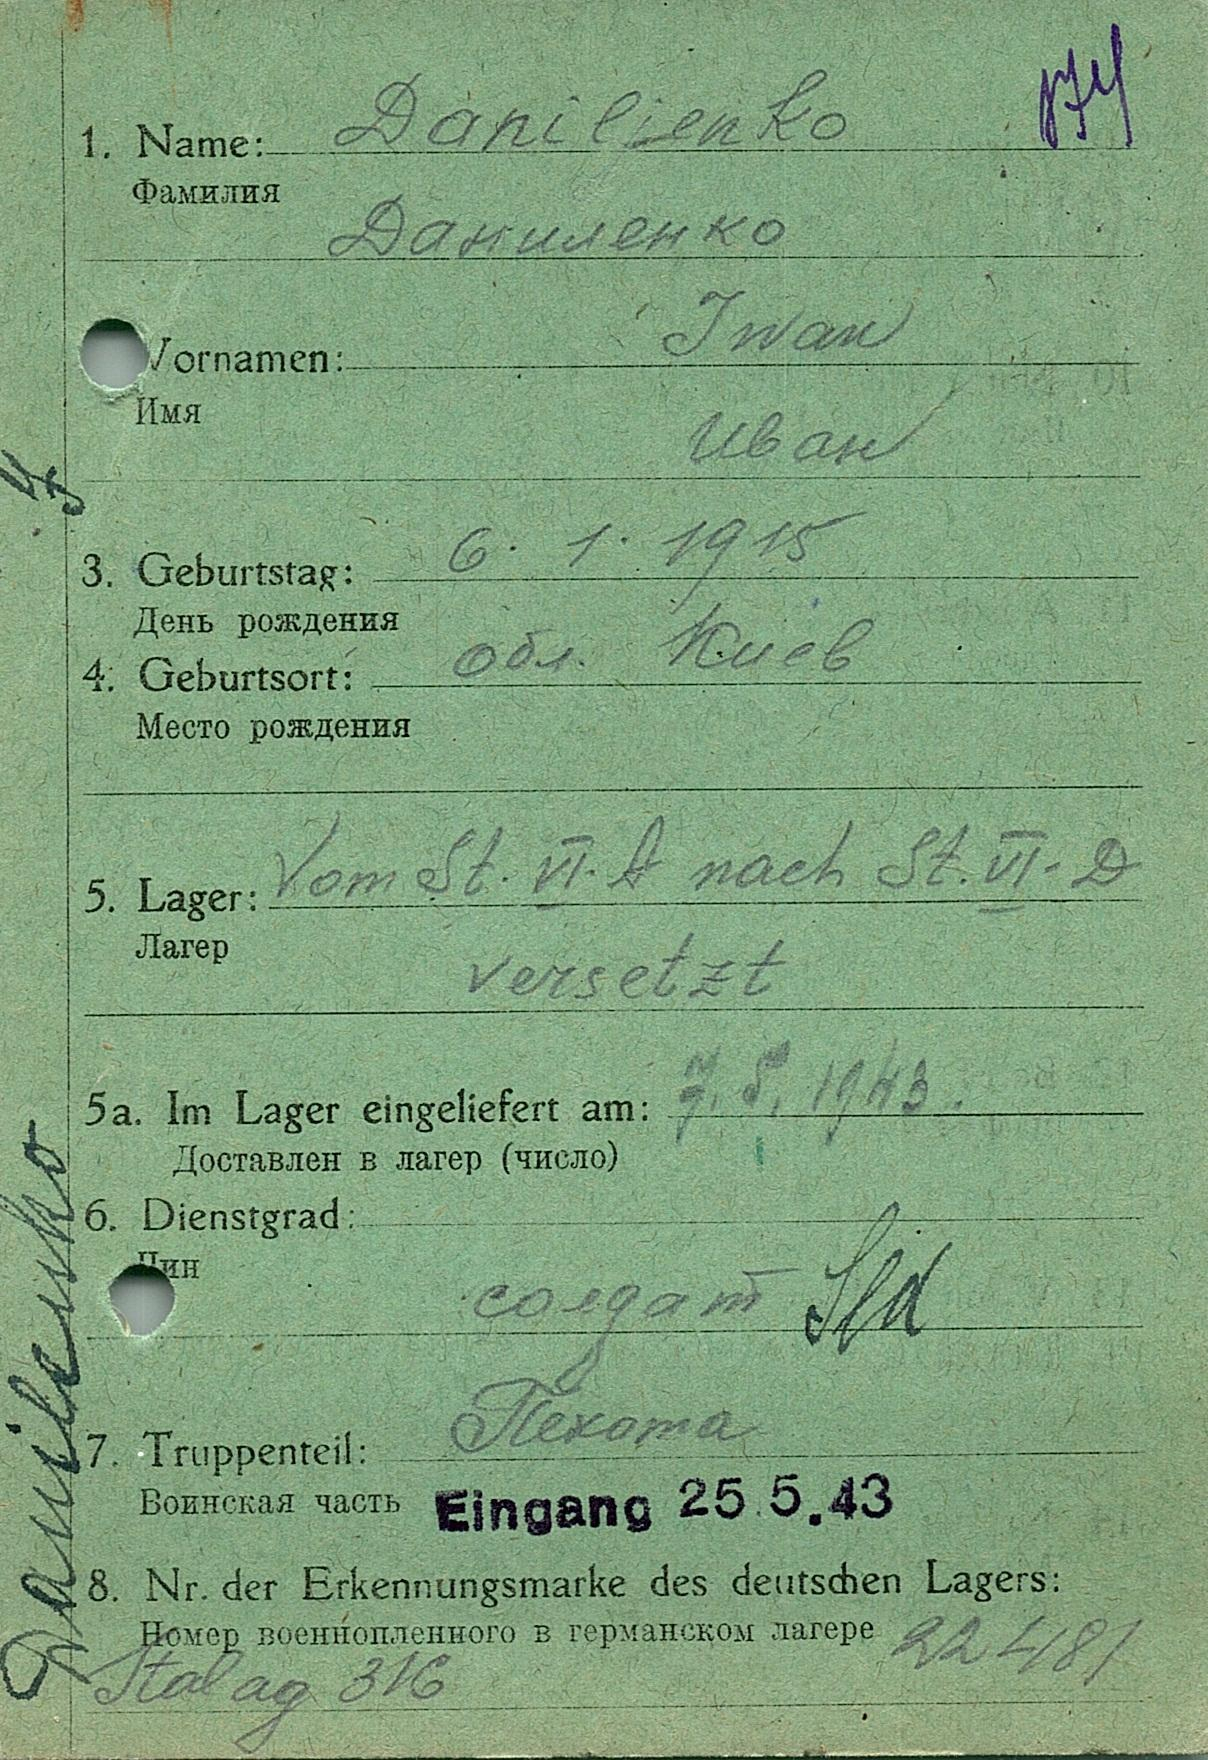 1. Name: Daniljenko
Фамилия
Даниленко
Vornamen: Iwan
Имя
Иван
3. Geburtstag: 6. 1. 1915
День рождения
4. Geburtsort: обл. Киев
Место рождения
5. Lager: Vom St. VI. A nach St. VI-D
Лагер
versetzt
5a. Im Lager eingeliefert am: 7. 5. 1943.
Доставлен в лагер (число)
6. Dienstgrad:
Чин
солдат Sld
7. Truppenteil: Пехота
Воинская часть
Eingang 25.5.43
8. Nr. der Erkennungsmarke des deutschen Lagers:
Номер военнопленного в германском лагере 22481
Stalag 316
Danilenko